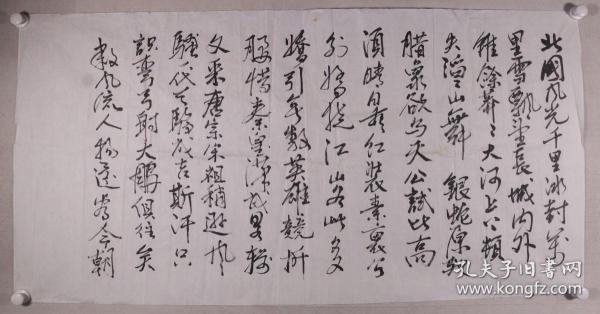 北国风光千里冰封万
里雪飘望长城内外
惟余莽々大河上下顿
失滔々山舞银蛇原驰
腊象欲与天公试比高
须晴日看红装素裹分
外妖娆江山如此多
娇引无数英雄竞折
腰惜秦皇汉武略输
文采唐宗宋祖稍逊风
骚一代天骄成吉斯汗只
识弯弓射大雕俱往矣
数风流人物还看今朝
孔夫子旧书网
www.kongfz.com